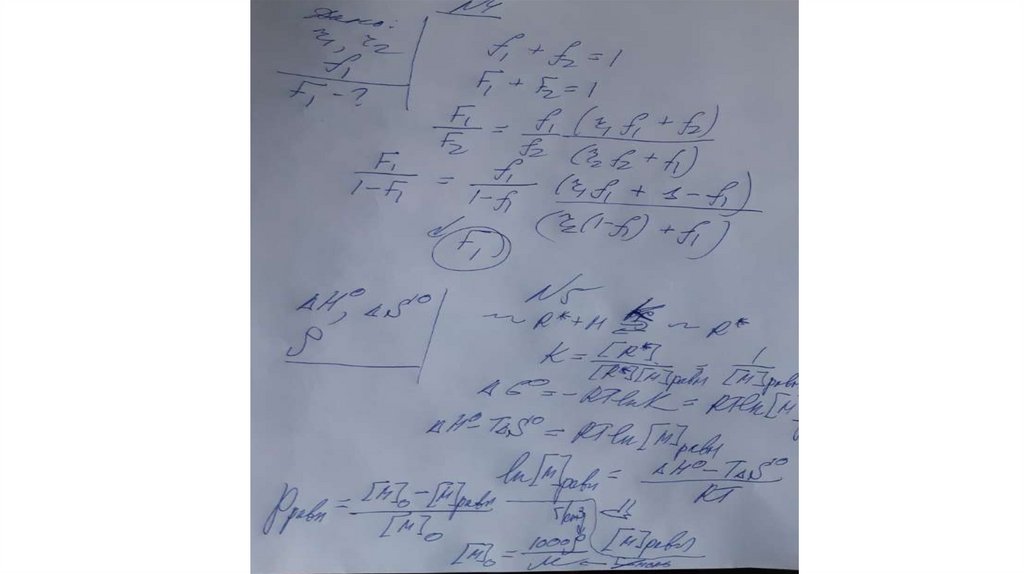 N4
Дано:
r₁, r₂
f₁
F₁ - ?
f₁ + f₂ = 1
F₁ + F₂ = 1
F₁/F₂ = f₁/f₂ (r₁f₁ + f₂)/(r₂f₂ + f₁)
F₁/(1-F₁) = f₁/(1-f₁) (r₁f₁ + 1 - f₁)/(r₂(1-f₁) + f₁)
F₁
N5
ΔH⁰, ΔS⁰
ρ
~ R* + M ⇌ ~ R*
K = [R*]/[R*][M]равн = 1/[M]равн
ΔG⁰ = -RTlnK = RTln[M]
ΔH⁰ - TΔS⁰ = RTln[M]равн
ln[M]равн = (ΔH⁰ - TΔS⁰)/RT
Pравн = ([M]₀ - [M]равн)/[M]₀
[M]₀ = 1000ρ/M
[M]равн